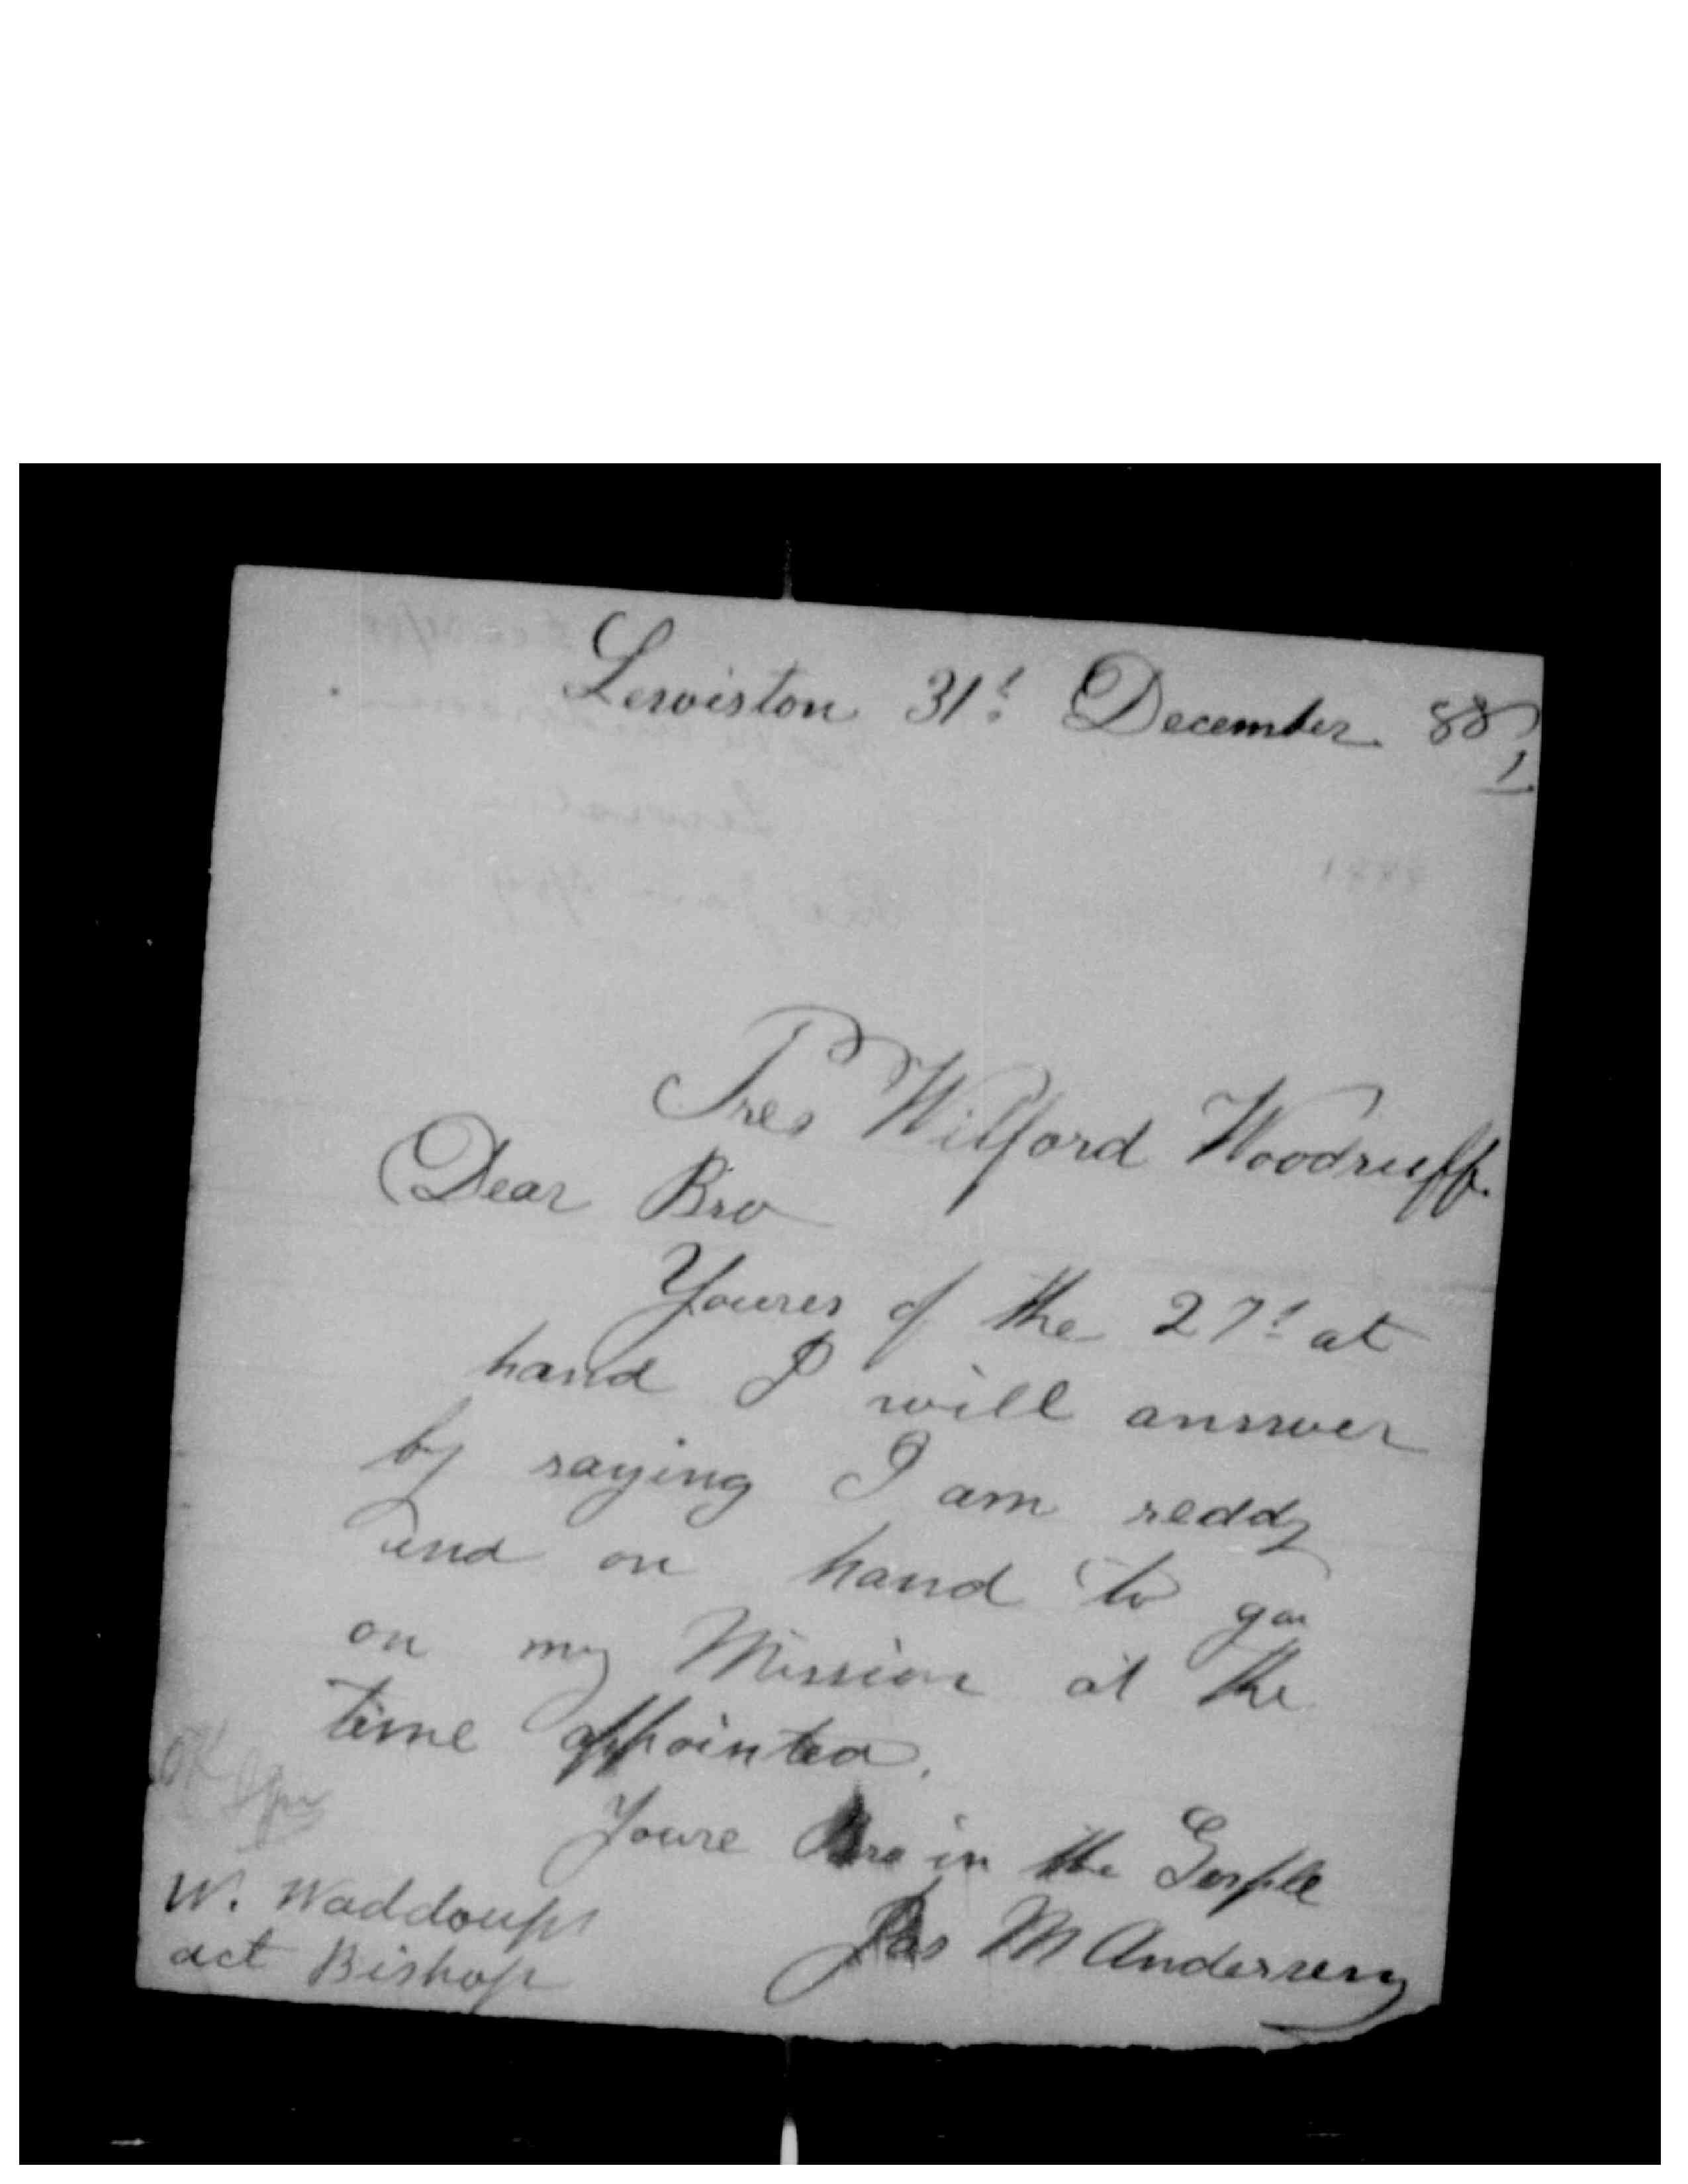 Lewiston 31t December 88
Pres Wilford Woodruff.
Dear Bro
Youres of the 27t at
hand I will answer
by saying I am reddy
and on hand to go
on my Mission at the
time appointed.
Youre Bro in the Gosple
Jas M Andersen
OK
W. Waddoups
act Bishop